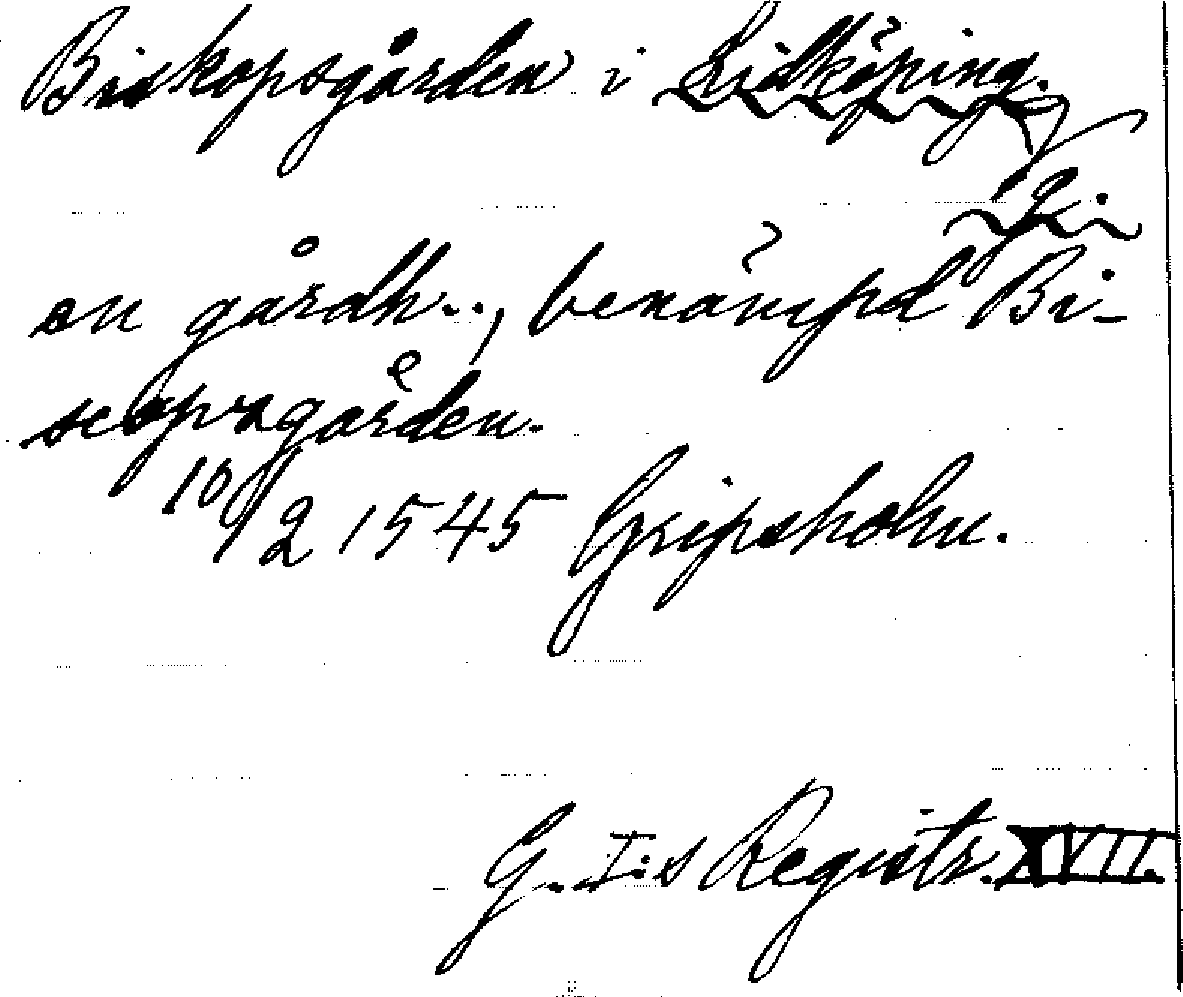 Biskopsgården i Lidköping.
en gårdh.., benämpd Bi-
scopsgården.
10/2 1545 Gripsholm.
G. I:s Registr. XVII.